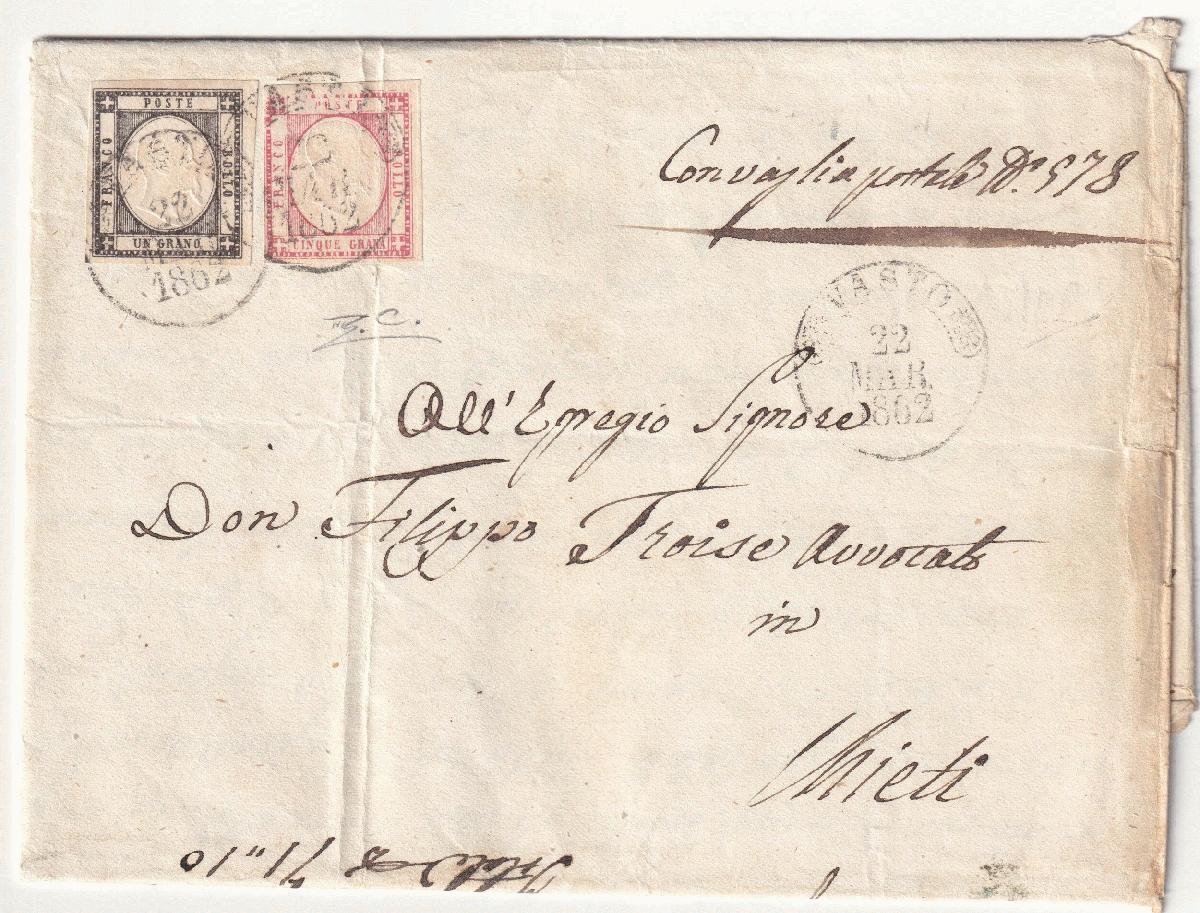 POSTE
FRANCO
BOLLO
UN GRANO
22
1862
POSTE
FRANCO
BOLLO
CINQUE GRANA
Con vaglia postale N.º 578
VASTO
22
MAR.
1862
All' Egregio Signore
Don Filippo Troise Avvocato
in
Chieti
71"10